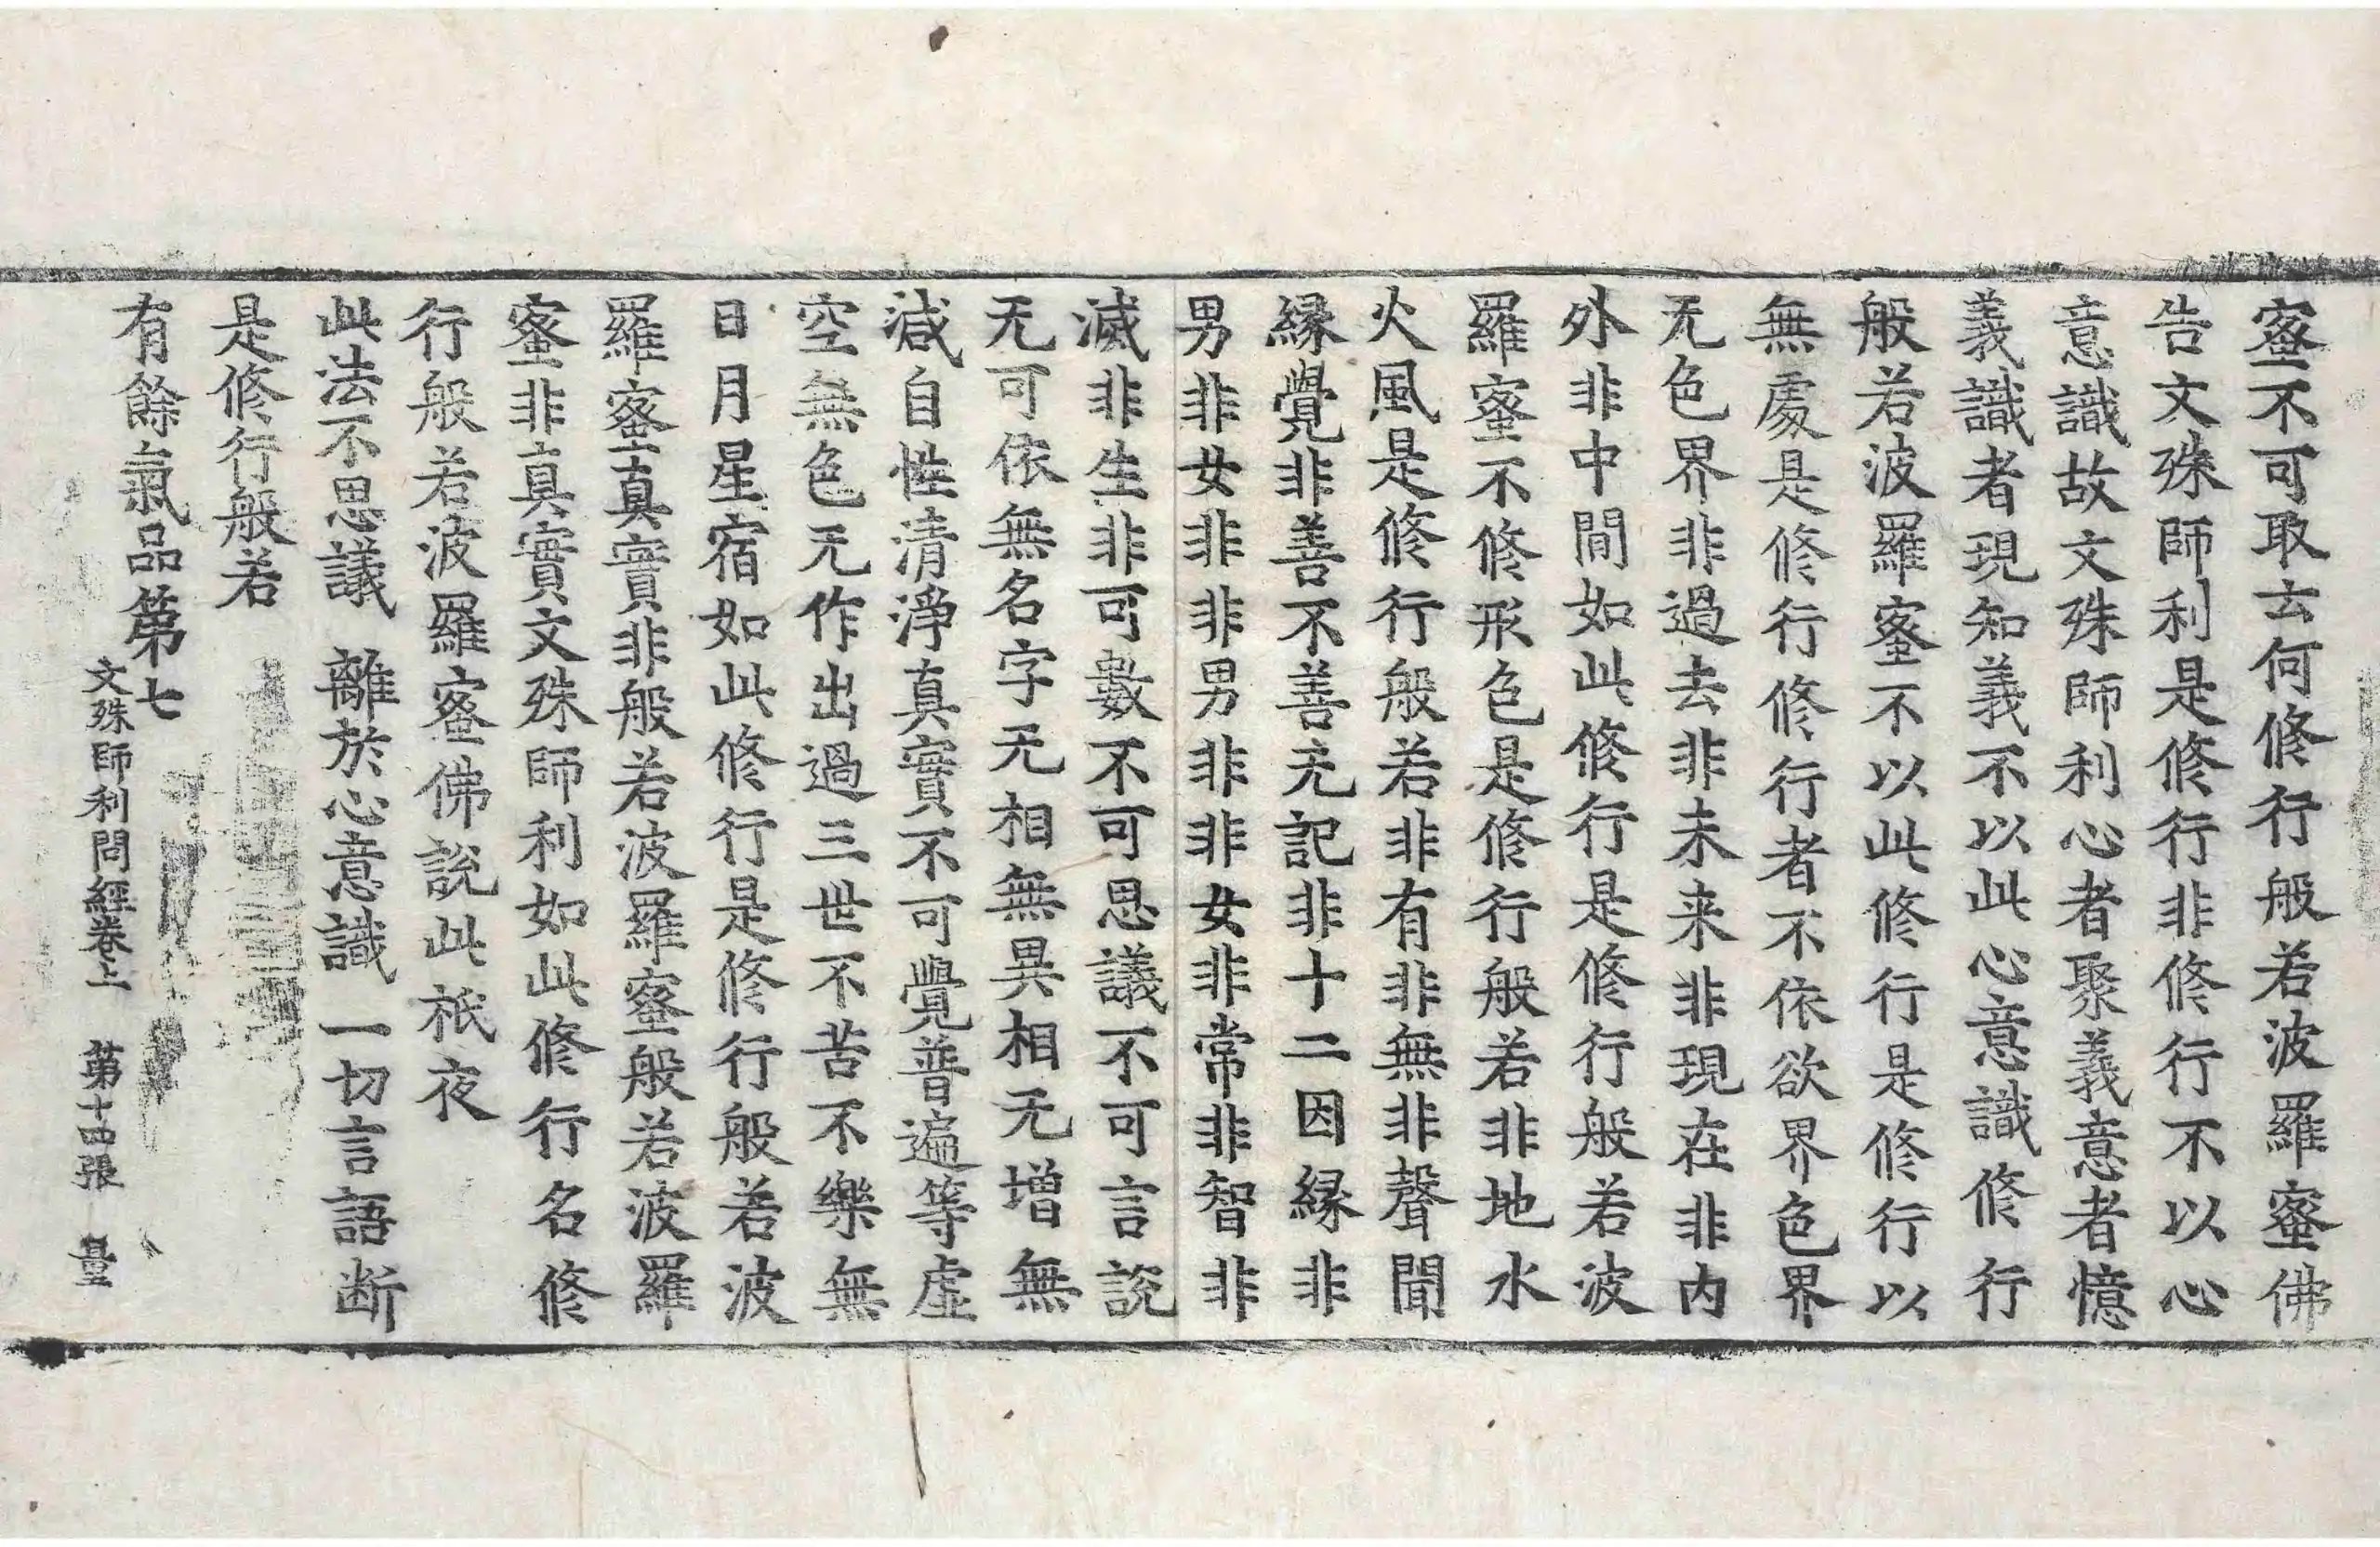 蜜不可取云何修行般若波羅蜜佛
告文殊師利是修行非修行不以心
意識故文殊師利心者聚義意者憶
義識者現知義不以此心意識修行
般若波羅蜜不以此修行是修行以
無處是修行修行者不依欲界色界
无色界非過去非未来非現在非内
外非中間如此修行是修行般若波
羅蜜不修形色是修行般若非地水
火風是修行般若非有非無非聲聞
縁覺非善不善无記非十二因縁非
男非女非非男非非女非常非智非
滅非生非可數不可思議不可言說
无可依無名字无相無異相无增無
減自性清淨真實不可覺普遍等虛
空無色无作出過三世不苦不樂無
日月星宿如此修行是修行般若波
羅蜜真實非般若波羅蜜般若波羅
蜜非真實文殊師利如此修行名修
行般若波羅蜜佛說此祇夜
此法不思議　離於心意識　一切言語断
是修行般若
有餘氣品第七
文殊師利問經卷上　第十四張　量